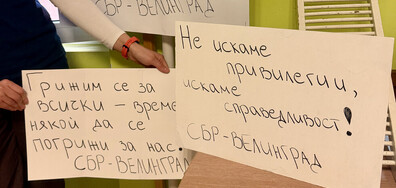 СБР-ВЕЛИНГРАД
Грижим се за
всички – време
някой да се
погрижи за нас!
СБР-ВЕЛИНГРАД
Не искаме
привилегии,
искаме
справедливост!
СБР-ВЕЛИНГРАД